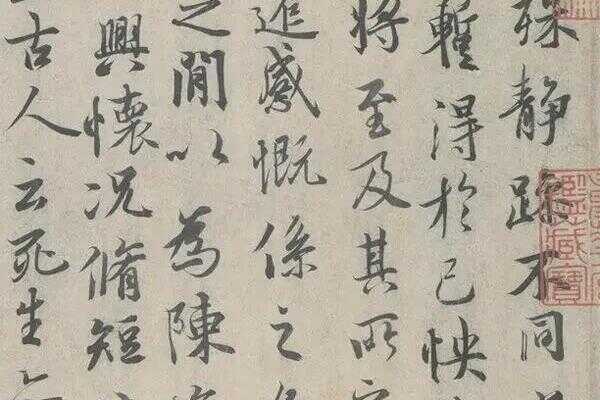 殊静躁不同
暫得於己怏
將至及其所
遷感慨係之
之閒以為陳
興懷況脩短
古人云死生